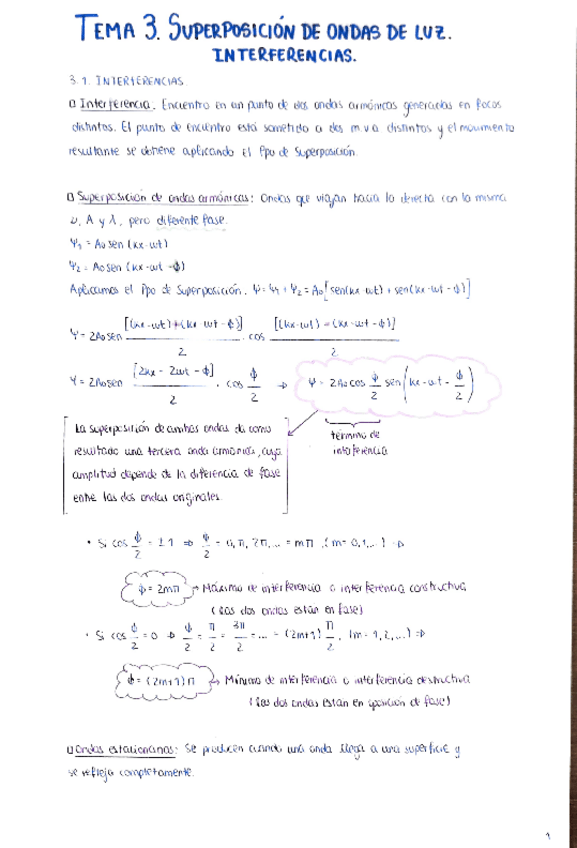 TEMA 3. SUPERPOSICIÓN DE ONDAS DE LUZ.
INTERFERENCIAS.
3.1. INTERFERENCIAS
Interferencia. Encuentro en un punto de dos ondas armónicas generadas en focos
distintos. El punto de encuentro está sometido a dos m.v.a distintos y el movimiento
resultante se obtiene aplicando el Ppo de Superposición.
Superposición de ondas armónicas: Ondas que viajan hacia la derecha con la misma
ν, A y λ, pero diferente fase.
Ψ₁ = A₀ sen (kx-ωt)
Ψ₂ = A₀ sen (kx-ωt-ϕ)
Aplicamos el Ppo de Superposición. Ψ = Ψ₁ + Ψ₂ = A₀ [sen(kx-ωt) + sen(kx-ωt-ϕ)]
Ψ = 2A₀ sen [(kx-ωt)+(kx-ωt-ϕ)]/2 . cos [(kx-ωt)-(kx-ωt-ϕ)]/2
Ψ = 2A₀ sen [2kx-2ωt-ϕ]/2 . cos ϕ/2 ⇒ Ψ = 2A₀ cos ϕ/2 sen (kx-ωt-ϕ/2)
término de
interferencia
La superposición de ambas ondas da como
resultado una tercera onda armónica, cuya
amplitud depende de la diferencia de fase
entre las dos ondas originales.
• Si cos ϕ/2 = ±1 ⇒ ϕ/2 = 0, π, 2π,... = mπ, (m= 0,1,...) ⇒
ϕ = 2mπ → Máximo de interferencia o interferencia constructiva
(Las dos ondas están en fase)
• Si cos ϕ/2 = 0 ⇒ ϕ/2 = π/2 = 3π/2 = ... = (2m+1) π/2, (m = 1,2,...) ⇒
ϕ = (2m+1)π → Mínimo de interferencia o interferencia destructiva
(Las dos ondas están en oposición de fase)
Ondas estacionarias: Se producen cuando una onda llega a una superficie y
se refleja completamente.
1